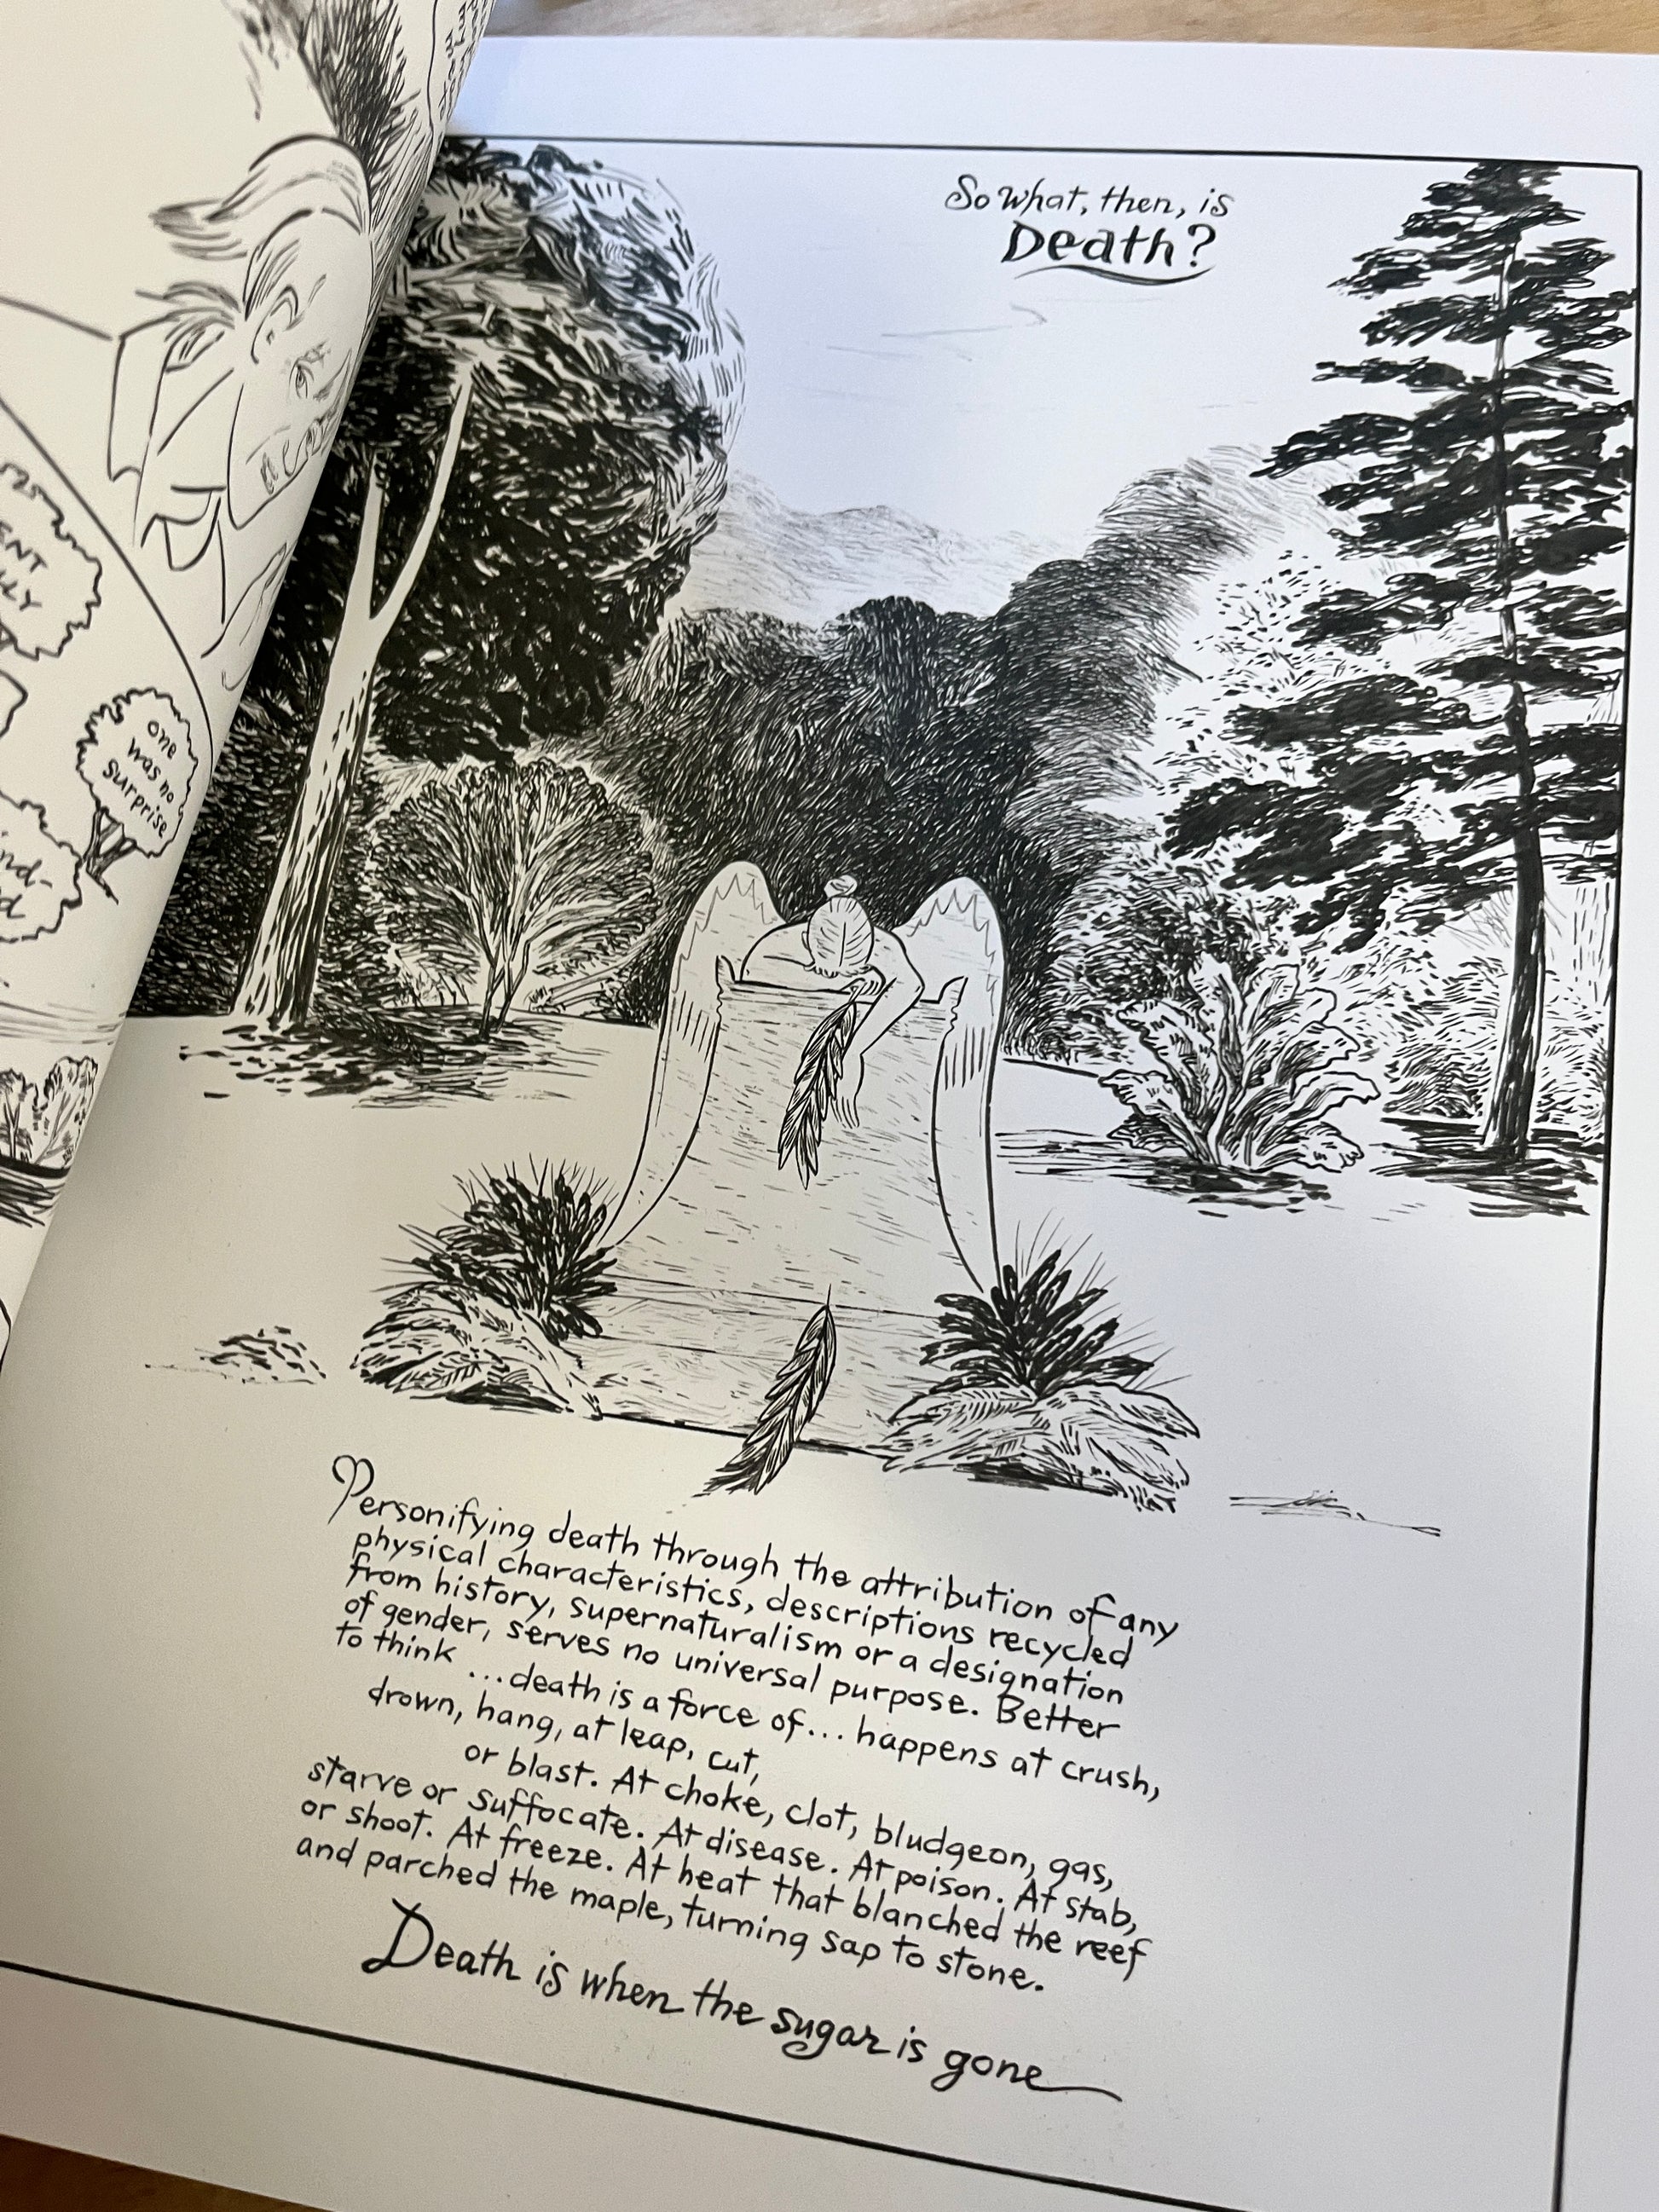 one
was no
surprise
So what, then, is
Death?
Personifying death through the attribution of any
physical characteristics, descriptions recycled
from history, supernaturalism or a designation
of gender, serves no universal purpose. Better
to think ...death is a force of... happens at crush,
drown, hang, at leap, cut,
or blast. At choke, clot, bludgeon, gas,
starve or suffocate. At disease. At poison. At stab,
or shoot. At freeze. At heat that blanched the reef
and parched the maple, turning sap to stone.
Death is when the sugar is gone